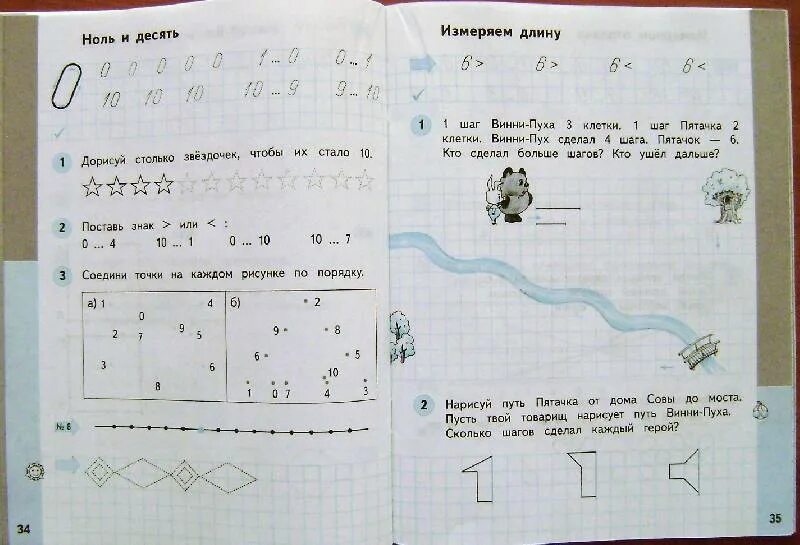 Ноль и десять
0 0 0 0 0 0 1 ... 0 0 ... 1
10 10 10 10 ... 9 9 ... 10
1 Дорисуй столько звёздочек, чтобы их стало 10.
2 Поставь знак > или < :
0 ... 4 10 ... 1 0 ... 10 10 ... 7
3 Соедини точки на каждом рисунке по порядку.
а) 1 4
0
2 7 9 5
3 6
8
б) 2
9 8
6 5
10
1 0 7 4 3
№ 6
34
Измеряем длину
6 > 6 > 6 < 6 <
1 1 шаг Винни-Пуха 3 клетки. 1 шаг Пятачка 2
клетки. Винни-Пух сделал 4 шага. Пятачок — 6.
Кто сделал больше шагов? Кто ушёл дальше?
2 Нарисуй путь Пятачка от дома Совы до моста.
Пусть твой товарищ нарисует путь Винни-Пуха.
Сколько шагов сделал каждый герой?
35